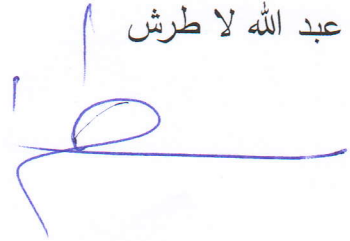 عبد الله لا طرش